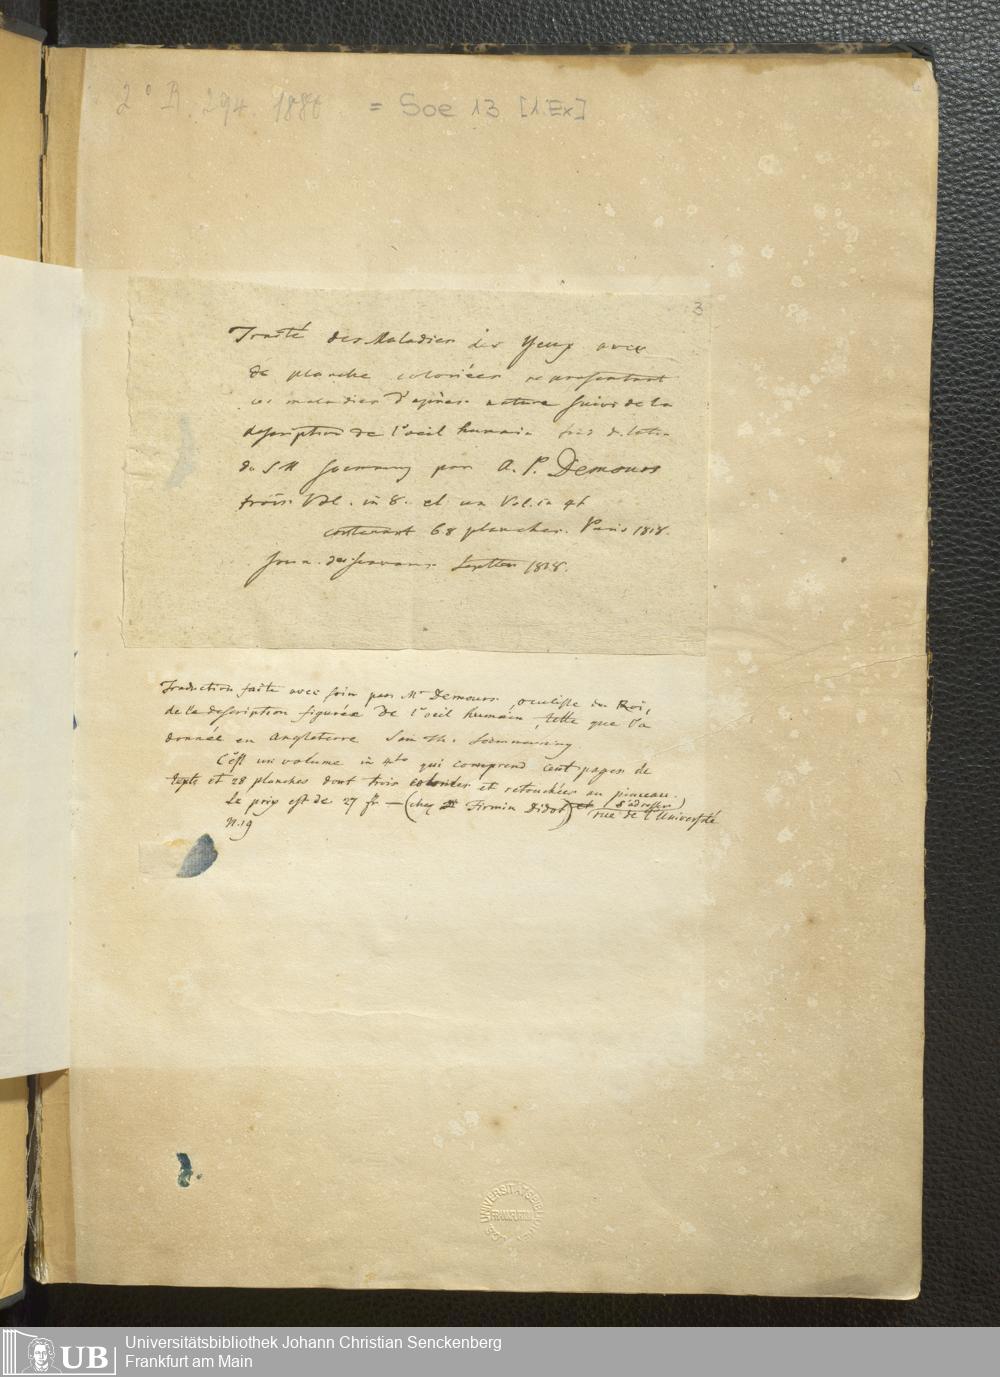 2° R 294. 1886 = Soe 13 [1.Ex]
3
Traité des Maladies des Yeux avec
de planche coloriées représentant
ces maladies d'après nature suivi de la
description de l'oeil humain trad. du latin
de S M Soemmering par A. P. Demours
trois Vol. in 8. et un Vol. in 4t
contenant 68 planches. Paris 1818.
Journ. des Savans Septbr 1818.
Traduction faite avec soin par Mr Demours, oculiste du Roi,
de la description figurée de l'oeil humain, telle que l'a
donnée en Angleterre Sam Th. Soemmerring
C'est un volume in 4to qui comprend cent pages de
texte et 28 planches dont trois coloriées et retouchées au pinceau.
Le prix est de 27 fr — (chez Firmin Didot) et (s'adresser)
rue de l'Université
N.19
UNIVERSITÄTSBIBLIOTHEK
FRANKFURT
UB
Universitätsbibliothek Johann Christian Senckenberg
Frankfurt am Main